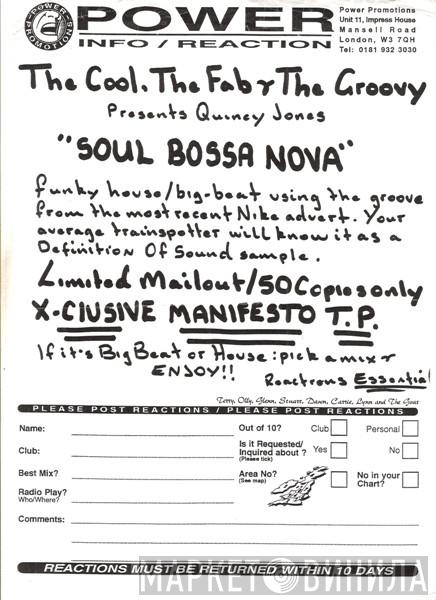 POWER PROMOTIONS
POWER
INFO / REACTION
Power Promotions
Unit 11, Impress House
Mansell Road
London, W3 7QH
Tel: 0181 932 3030
The Cool. The Fab & The Groovy
Presents Quincy Jones
"SOUL BOSSA NOVA"
funky house/big-beat using the groove
from the most recent Nike advert. Your
average trainspotter will know it as a
Definition Of Sound sample.
Limited Mailout/50 Copies only
X-CIUSIVE MANIFESTO T.P.
If it's Big Beat or House: pick a mix &
ENJOY!!
Reactions Essential
Terry, Olly, Glenn, Stuart, Dawn, Carrie, Lynn and The Goat
PLEASE POST REACTIONS / PLEASE POST REACTIONS
Name: Out of 10? Club Personal
Club: Is it Requested/
Inquired about ? Yes No
(Please tick)
Best Mix? Area No? No in your
(See map) Chart?
Radio Play?
Who/Where?
Comments:
REACTIONS MUST BE RETURNED WITHIN 10 DAYS
МАРКЕТ ВИНИЛА